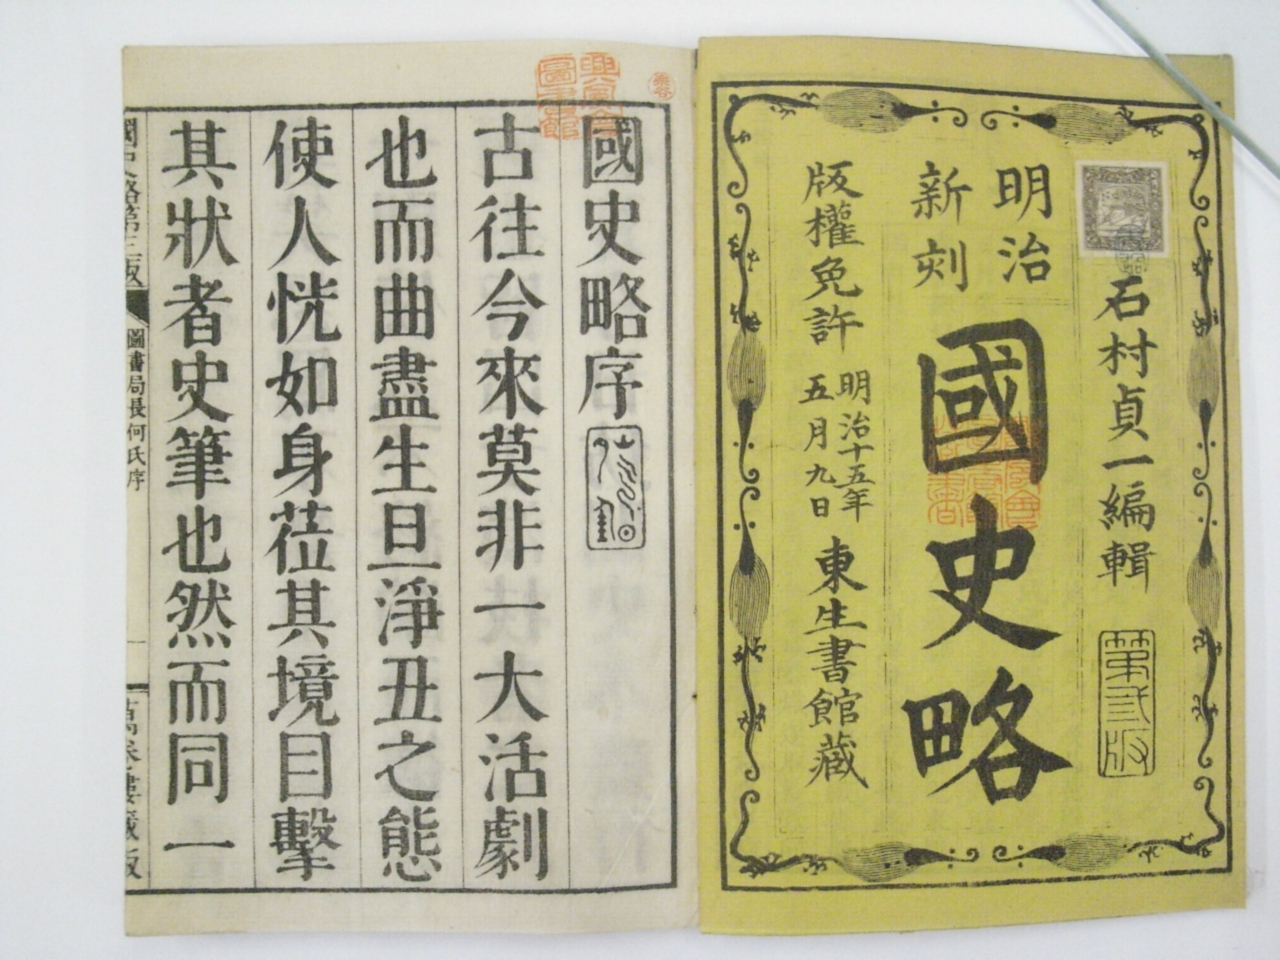 石村貞一編輯
第弐版
明治
新刻
國史略
版權免許
明治十五年
五月九日
東生書館藏
國史略序
古往今來莫非一大活劇
也而曲盡生旦淨丑之態
使人恍如身莅其境目擊
其狀者史筆也然而同一
國史略第三版
圖書局長何氏序
萬朶樓藏版